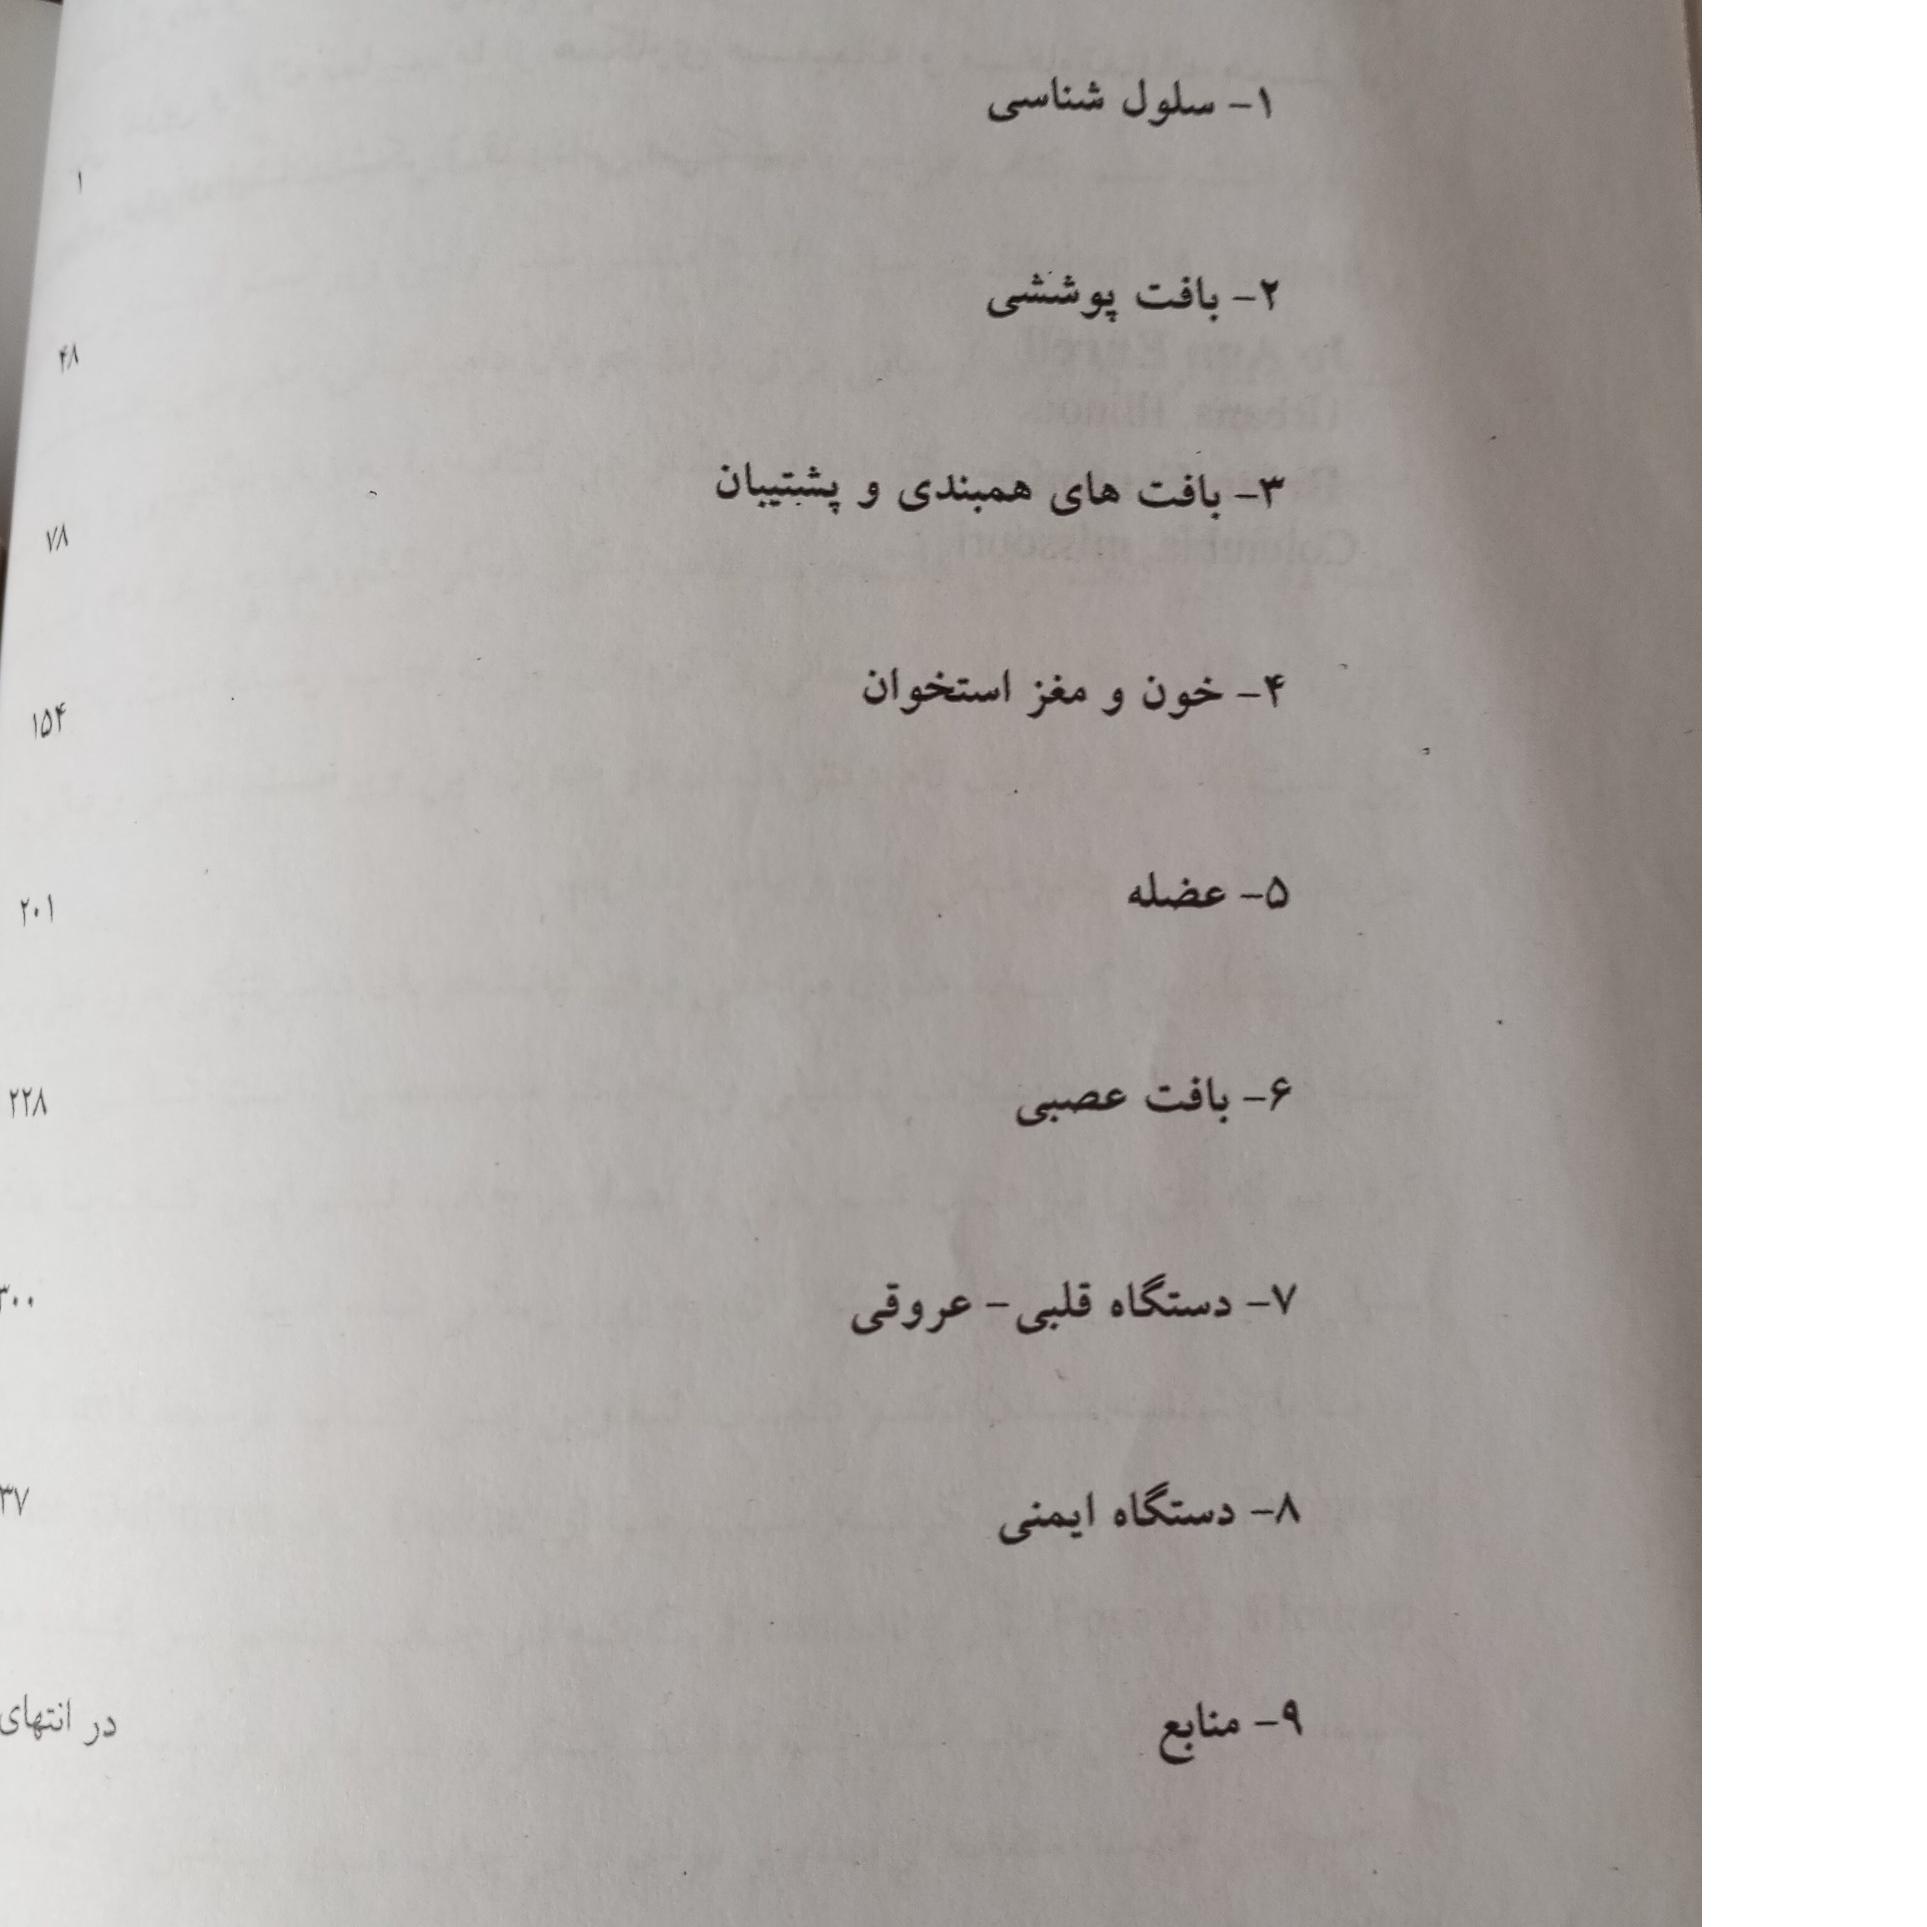 ۱- سلول شناسی
۱
۲- بافت پوششی
۴۸
۳- بافت های همبندی و پشتیبان
۷۸
۴- خون و مغز استخوان
۱۵۴
۵- عضله
۲۰۱
۶- بافت عصبی
۲۲۸
۷- دستگاه قلبی - عروقی
۳۰۰
۸- دستگاه ایمنی
۳۷
۹- منابع
در انتهای